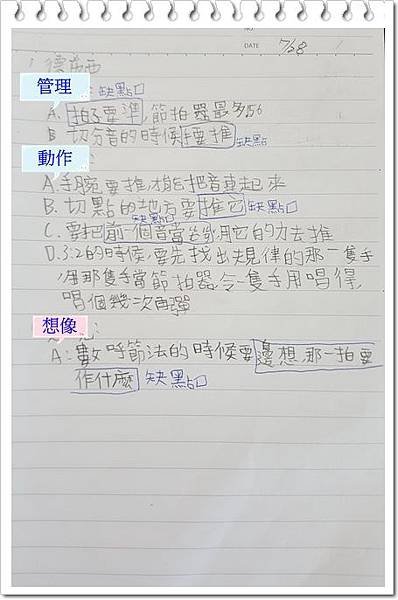 DATE 7/28
1. 德布西
管理: 缺點口
A. 拍子要準,節拍器最多56
B 切分音的時候要推 缺點
動作:
A.手腕要推,才能把音串起來
B. 切點的地方要推它 缺點口
缺點口
C. 要把前一個音當 ,用它的力去推
D.3:2的時候,要先找出規律的那一隻手
,用那隻手當節拍器,令一隻手用唱得,
唱個幾次再彈
想像:
A: 數呼節法的時候要邊想,那一拍要
作什麼 缺點口